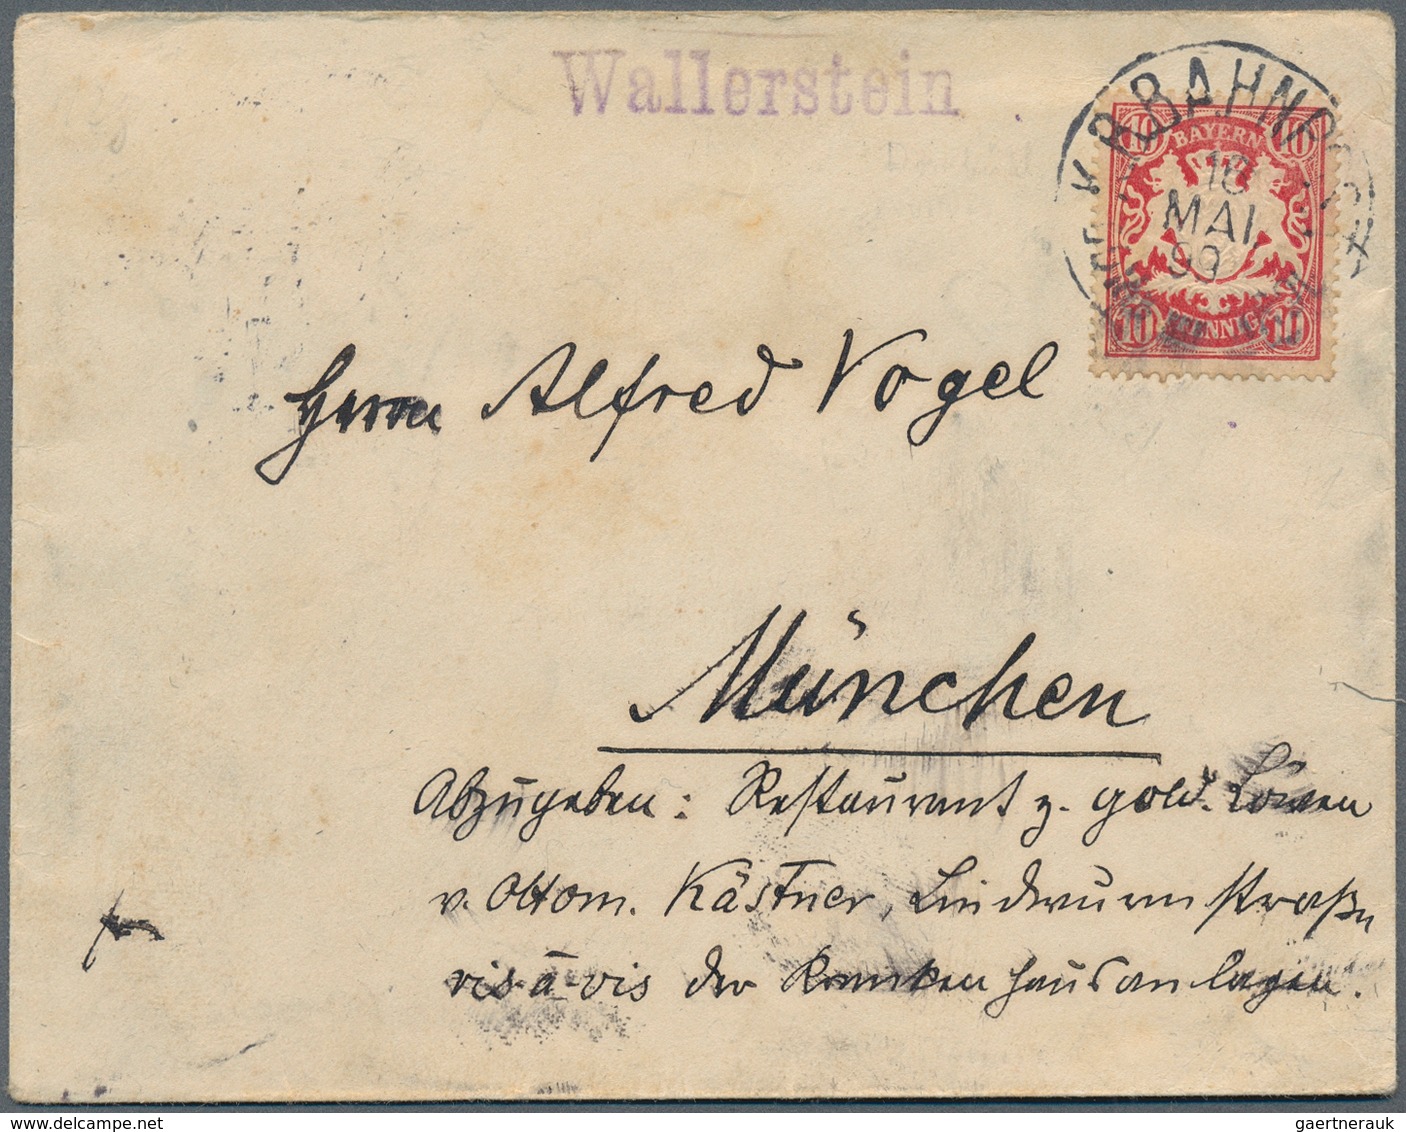 Wallerstein
K.B.BAHNPOST
10 BAYERN 10
18
MAI
99
10 PFENNIG 10
Herrn Alfred Vogel
München
Abzugeben: Restaurant z. gold. Löwen
v. Ottom. Kästner, Lindwurmstraße
vis-à-vis der Krankenhausanlagen.
delcampe.net
gaertnerauk